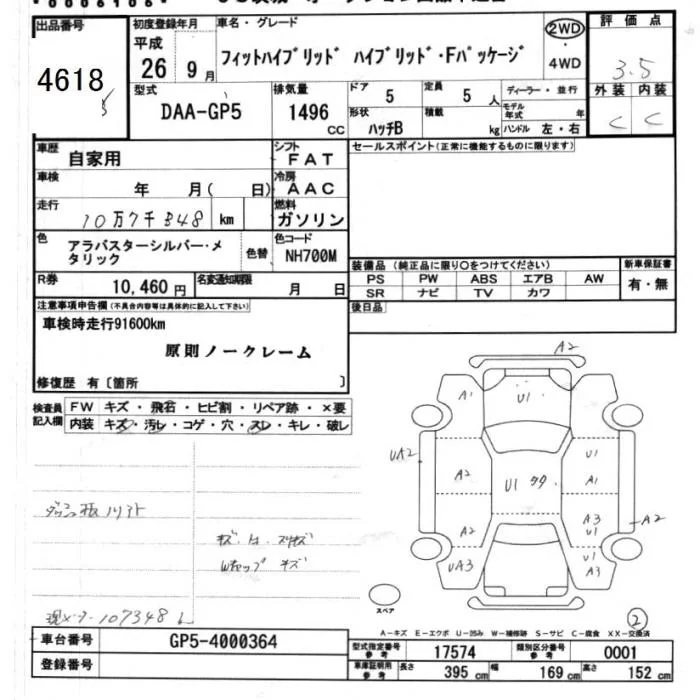 出品番号 初度登録年月 車名・グレード 2WD 評価点
4618 平成 26 9月 フィットハイブリッド ハイブリッド・Fパッケージ 4WD 3.5
型式 排気量 ドア 定員 ディーラー・並行 外装 内装
DAA-GP5 1496 CC 5 5人 モデル年式 年 C C
形状 積載
ハッチB kg ハンドル 左・右
車歴 自家用 シフト FAT セールスポイント(正常に機能するものに限ります)
車検 年 月( 日) 冷房 AAC
走行 10万7千348 km 燃料 ガソリン
色 アラバスターシルバー・メタリック 色替 色コード NH700M
装備品(純正品に限り○をつけてください) 新車保証書
PS PW ABS エアB AW 有・無
SR ナビ TV カワ
R券 10,460円 名変通知期限 月 日 後日品
注意事項申告欄(不具合内容等は具体的に記入して下さい)
車検時走行91600km
原則ノークレーム
修復歴 有〔箇所 〕
検査員記入欄 FW キズ・飛石・ヒビ割・リペア跡・×要
内装 キズ・汚レ・コゲ・穴・スレ・キレ・破レ
A2
A1 U1
UA2 A2 U1 U1 A1
A2 A3 U1 A2
UA3 U1 A3
キズ
現メーター107348
スペア
2
A-キズ E-エクボ U-凹み W-補修跡 S-サビ C-腐食 XX-交換済
車台番号 GP5-4000364 型式指定番号 参考 17574 類別区分番号 参考 0001
登録番号 車庫証明用 参考 長さ 395 cm 幅 169 cm 高さ 152 cm